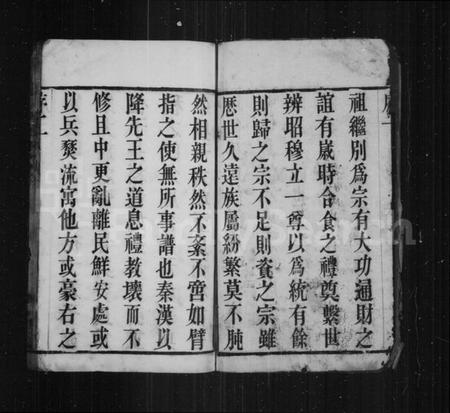 祖繼別為宗有大功通財之
誼有歲時合食之禮奠繫世
辨昭穆立一尊以為統有餘
則歸之宗不足則資之宗雖
歷世久遠族屬紛繁莫不肫
然相親秩然不紊不啻如臂
指之使無所事譜也秦漢以
降先王之道息禮教壞而不
修且中更亂離民鮮安處或
以兵燹流寓他方或豪右之
序二